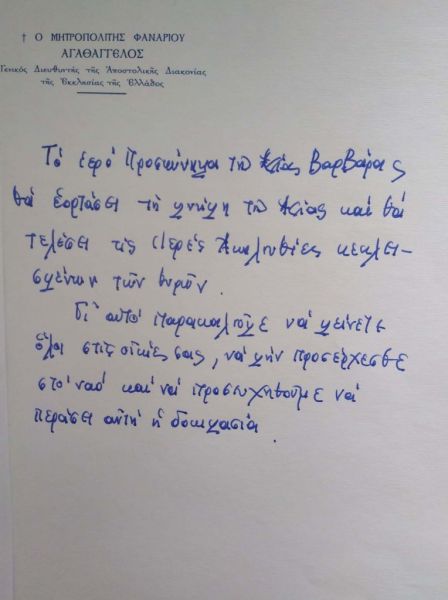 † Ο ΜΗΤΡΟΠΟΛΙΤΗΣ ΦΑΝΑΡΙΟΥ
ΑΓΑΘΑΓΓΕΛΟΣ
Γενικὸς Διευθυντὴς τῆς Ἀποστολικῆς Διακονίας
τῆς Ἐκκλησίας τῆς Ἑλλάδος
Τό ἱερό Προσκύνημα τῆς Ἁγίας Βαρβάρας
θά ἑορτάσει τή μνήμη τῆς Ἁγίας καί θά
τελέσει τίς Ἱερές Ἀκολουθίες κεκλει-
σμένων τῶν θυρῶν.
Γι' αὐτό παρακαλοῦμε νά μείνετε
ὅλοι στίς οἰκίες σας, νά μήν προσέρχεσθε
στό ναό καί νά προσευχηθοῦμε νά
περάσει αὐτή ἡ δοκιμασία.